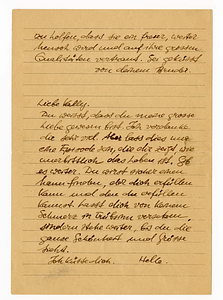 wir hoffen, dass sie ein freier, weiter
Mensch wird und auf ihre grossen
Qualitäten vertraut. Sei geküsst
von deinem Bruder.
Liebe Kathy.
Du weisst, dass du meine grosse
Liebe gewesen bist. Ich verdanke
dir sehr viel. Aber lass dies nur
eine Episode sein, die dir zeigt, wie
unerbittlich das Leben ist. Geh
es weiter. Du wirst sicher einen
Mann finden, der dich erfüllen
kann und den du erfüllen
kannst. Lasst dich von keinem
Schmerz in Trübsinn versetzen,
sondern gehe weiter, bis du die
ganze Schönheit und Grösse
siehst.
Ich küsse dich. Helle.